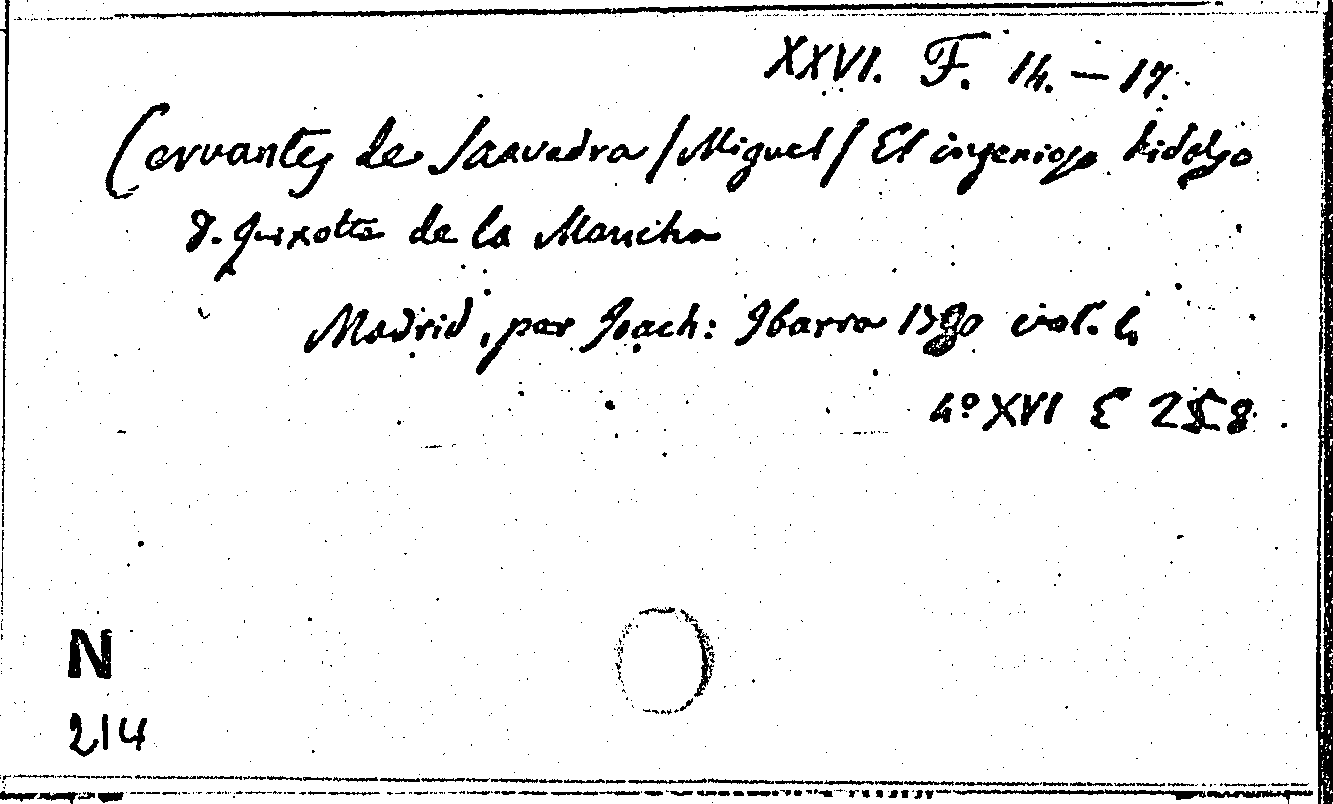 XXVI. F. 14. — 17.
Cervantes de Saavedra / Miguel / El ingenioso hidolgo
d. Quixotte de la Mancha
Madrid, por Joach: Ibarra 1780 vol. 4
4° XVI E 258.
N
214